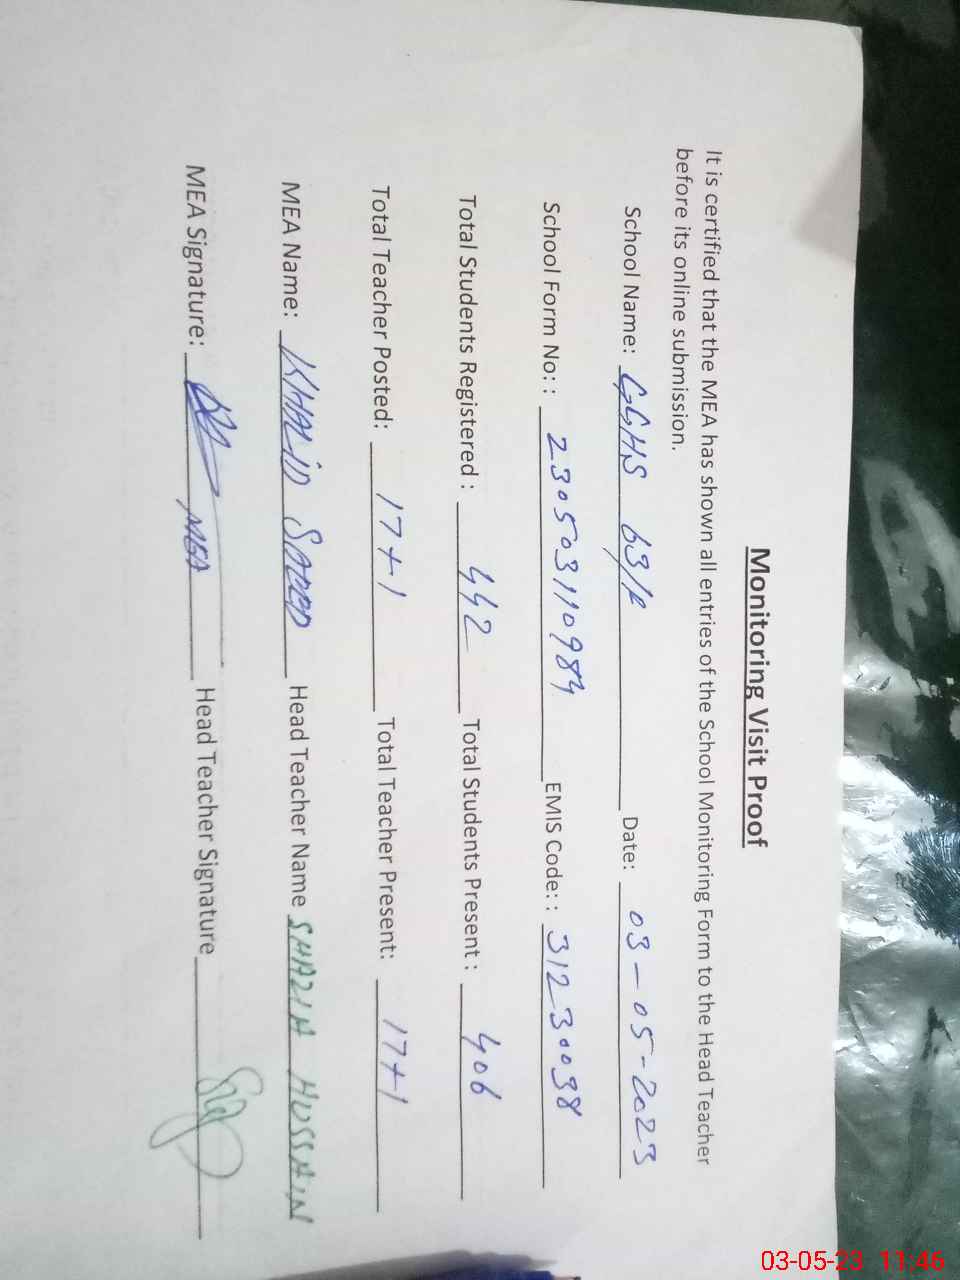 Monitoring Visit Proof
It is certified that the MEA has shown all entries of the School Monitoring Form to the Head Teacher
before its online submission.
School Name: GGHS 63/P Date: 03-05-2023
School Form No: : 230503110984 EMIS Code: : 31230038
Total Students Registered : 442 Total Students Present : 406
Total Teacher Posted: 17+1 Total Teacher Present: 17+1
MEA Name: KHALID SAEED Head Teacher Name SHAZIA HUSSAIN
MEA Signature: MEA Head Teacher Signature
03-05-23 11:46